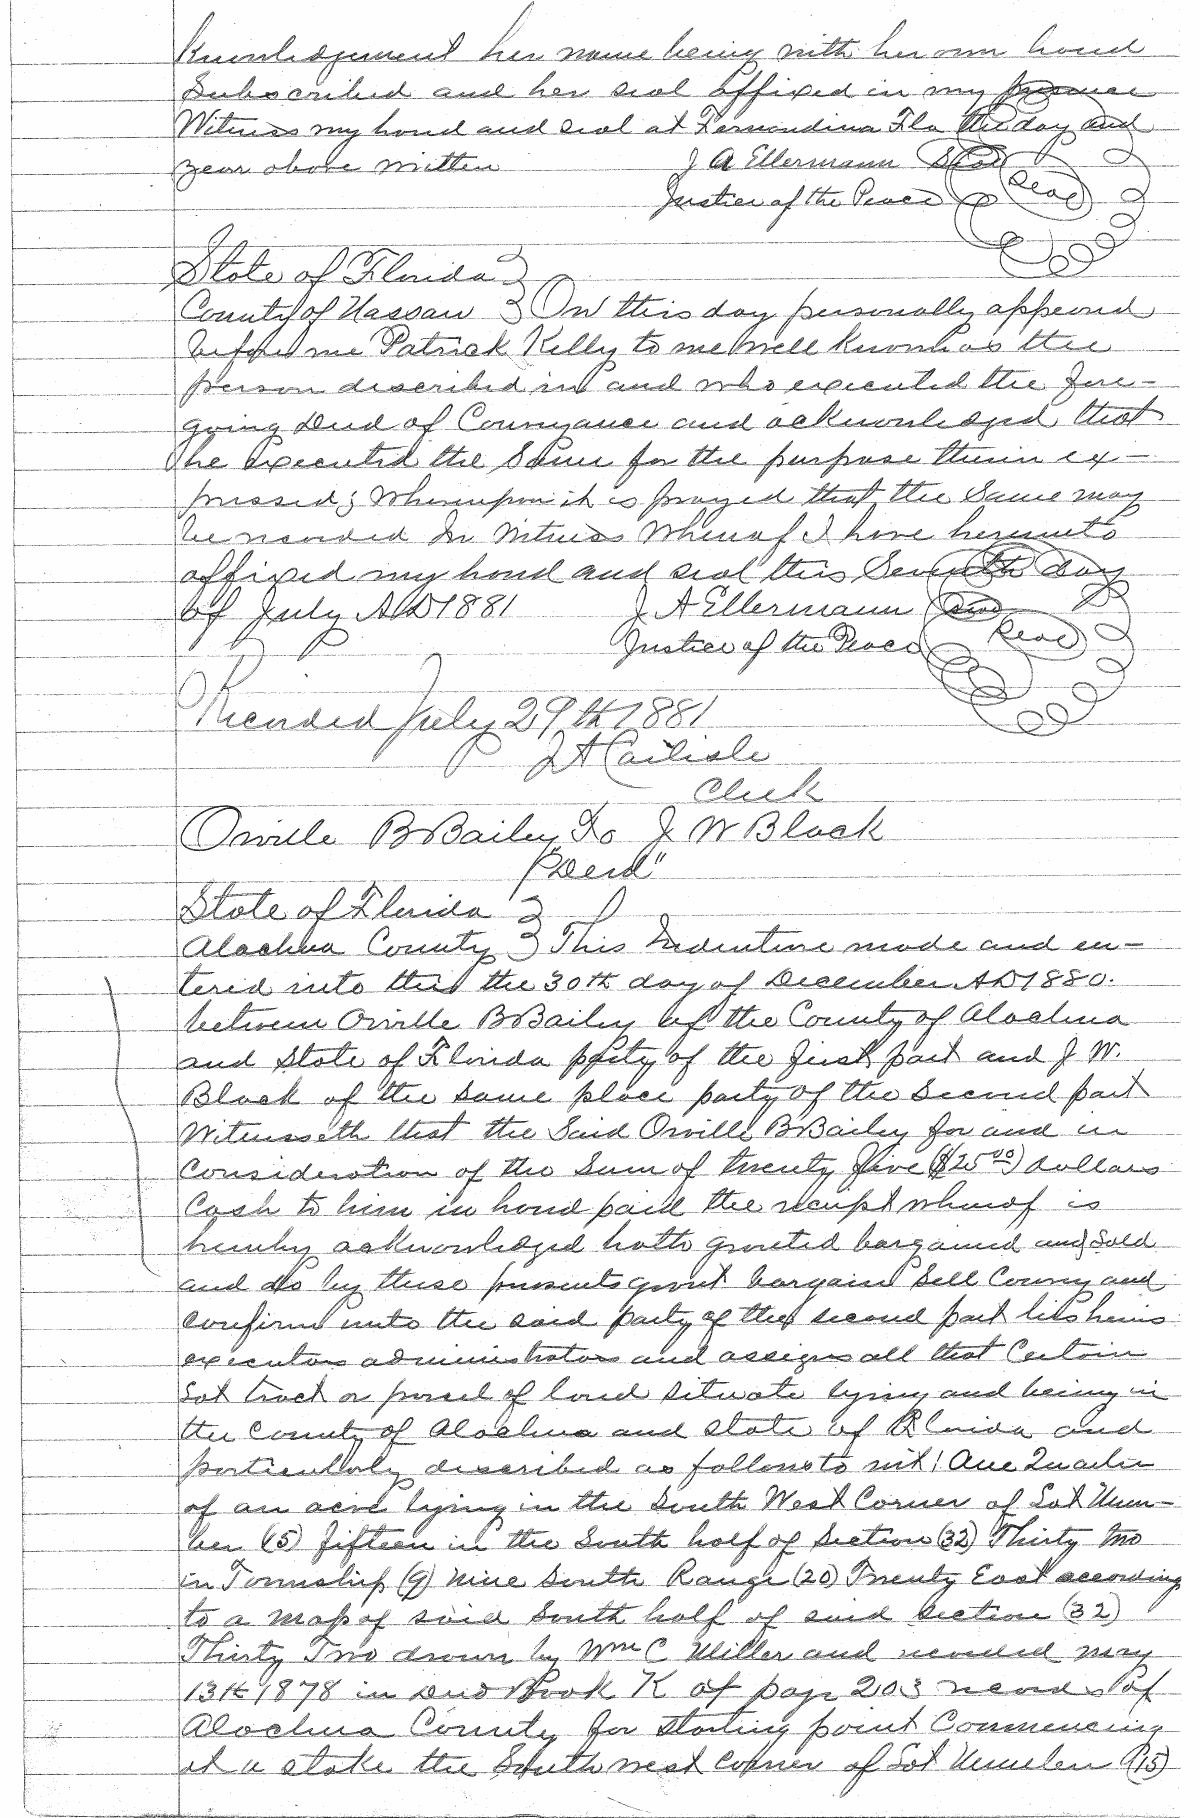 Knowledgement her name being with her own hand
Subscribed and her seal affixed in my presence
Witness my hand and seal at Fernandina Fla the day and
year above written J A Ellermann Seal
Justice of the Peace Seal
State of Florida }
County of Nassau } On this day personally appeared
before me Patrick Kelly to me well known as the
person described in and who executed the fore-
going Deed of Conveyance and acknowledged that
he executed the Same for the purpose therein ex-
pressed; Whereupon it is prayed that the Same may
be recorded In Witness Whereof I have hereunto
affixed my hand and seal this Seventh day
of July AD 1881 J A Ellermann Seal
Justice of the Peace Seal
Recorded July 29th 1881
J A Carlisle
Clerk
Orville B Bailey To J W Black
"Deed"
State of Florida }
Alachua County } This Indenture made and en-
tered into this the 30th day of December AD 1880.
between Orville B Bailey of the County of Alachua
and State of Florida party of the first part and J W.
Black of the same place party of the second part
Witnesseth that the Said Orville B Bailey for and in
Consideration of the Sum of twenty five ($25 00) dollars
Cash to him in hand paid the receipt whereof is
hereby acknowledged hath granted bargained and Sold
and do by these presents grant bargain Sell Convey and
confirm unto the said party of the second part his heirs
executors administrators and assigns all that Certain
Lot tract or parcel of land situate lying and being in
the County of Alachua and State of Florida and
particularly described as follows to wit: One Quarter
of an acre lying in the South West Corner of Lot Num-
ber (15) fifteen in the South half of Section (32) Thirty two
in Township (9) Nine South Range (20) Twenty East according
to a map of said South half of said section (32)
Thirty Two drawn by Wm C Miller and recorded may
13th 1878 in Deed Book K at page 203 records of
Alachua County for starting point Commencing
at a stake the South west corner of Lot Number (15)